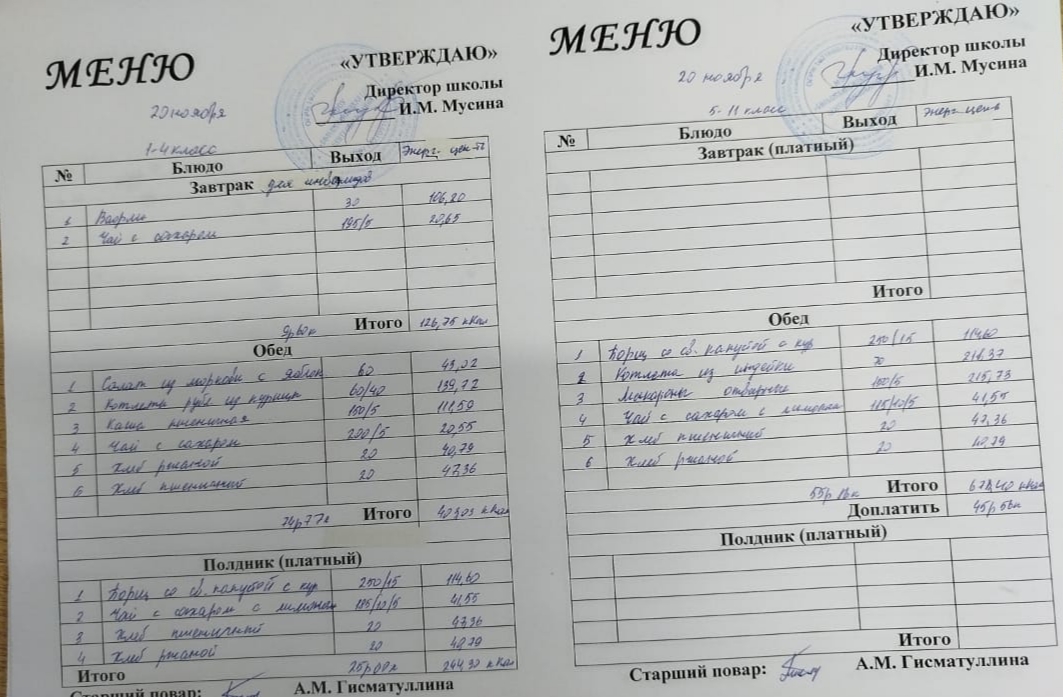 МЕНЮ
«УТВЕРЖДАЮ»
Директор школы
И.М. Мусина
20 ноября
1-4 класс
№ Блюдо Выход Энерг. цен-ть
Завтрак для инвалидов
1 Вафли 30 106,20
2 Чай с сахаром 195/5 20,65
Итого 126,75 кКал
Обед
1 Салат из моркови с яблок 60 49,02
2 Котлета руб из курицы 60/40 139,72
3 Каша пшеничная 150/5 111,59
4 Чай с сахаром 200/5 20,55
5 Хлеб ржаной 20 40,79
6 Хлеб пшеничный 20 47,36
74р77к Итого 409,03 кКал
Полдник (платный)
1 Борщ со св. капустой с кур 250/15 114,60
2 Чай с сахаром с лимоном 185/10/5 41,55
3 Хлеб пшеничный 20 47,36
4 Хлеб ржаной 20 40,79
Итого 25р00к 244,30 кКал
Старший повар: А.М. Гисматуллина
МЕНЮ
«УТВЕРЖДАЮ»
Директор школы
И.М. Мусина
20 ноября
5-11 класс
№ Блюдо Выход Энерг. цен-ь
Завтрак (платный)
Итого
Обед
1 Борщ со св. капустой с кур 250/15 114,60
2 Котлета из индейки 70 218,37
3 Макароны отварные 150/5 215,73
4 Чай с сахаром с лимоном 185/10/5 41,55
5 Хлеб пшеничный 20 47,36
6 Хлеб ржаной 20 40,79
Итого 678,40 кКал
Доплатить
Полдник (платный)
Итого
Старший повар: А.М. Гисматуллина